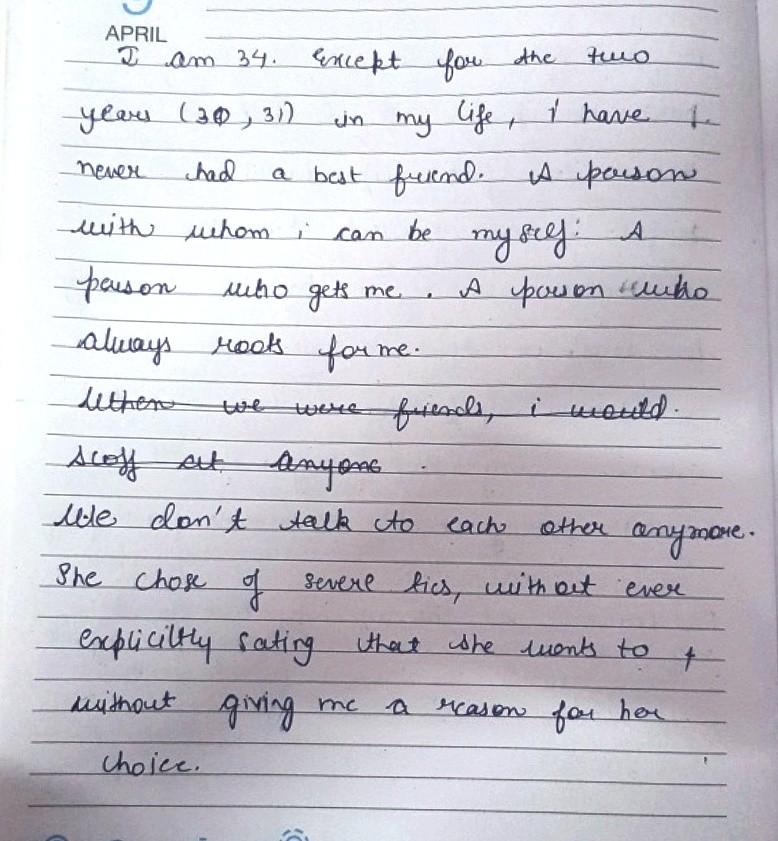 APRIL
I am 34. Except for the two
years (30, 31) in my life, i have
never had a best friend. A person
with whom i can be myself. A
person who gets me. A person who
always roots for me.
When we were friends, i would.
scoff at anyone
We don't talk to each other anymore.
She chose of severe tics, without ever
expliciltly sating that she wants to &
without giving me a reason for her
choice.